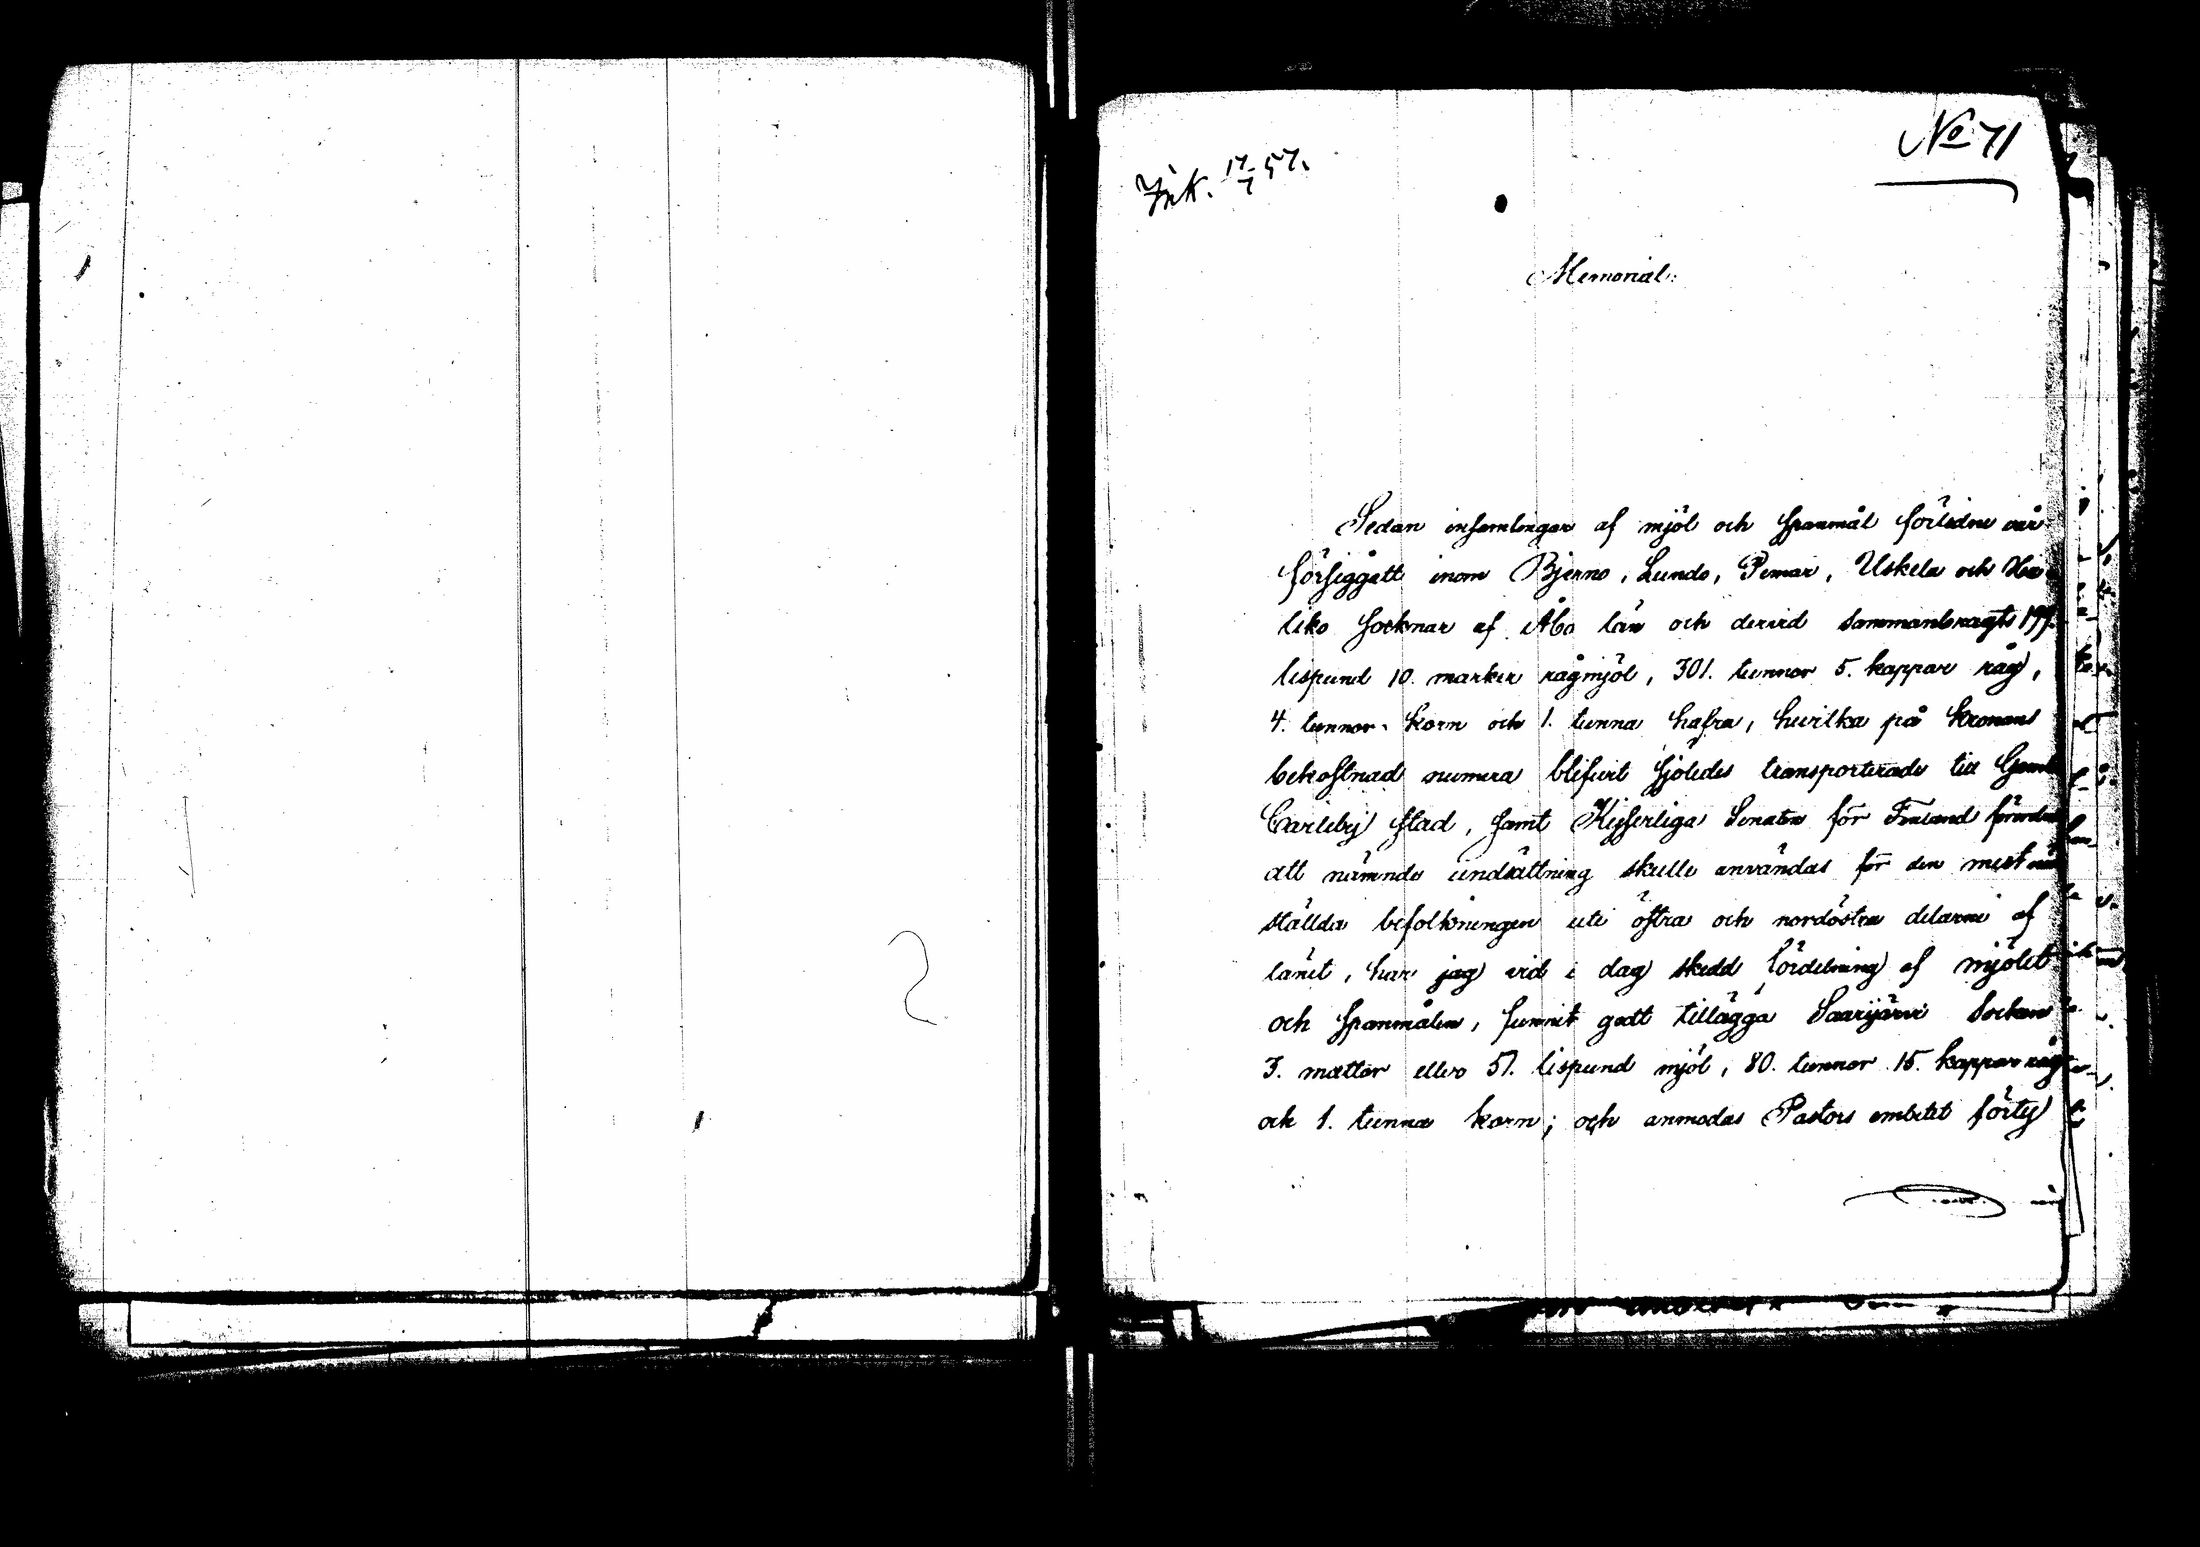 No 71
Ink. 17/7 57.
Memorial:
Sedan insamlingar af mjöl och spanmål förledne vår
försiggått inom Bjerno, Lundo, Pemar, Uskela och
liko socknar af Åbo län och dervid sammanbragts 199.
lispund 10. marker rågmjöl, 301. tunnor 5. kappar råg,
4. tunnor korn och 1. tunna hafra, hvilka på kronans
bekostnad numera blifvit sjöledes transporterade till Gamla
Carleby stad, samt Kejserliga Senaten för Finland förordnat
att nämnde undsättning skulle användas för den mest nöd
ställda befolkningen uti östra och nordöstra delarne af
länet, har jag vid i dag skedd fördelning af mjölet
och spanmålen, funnit godt tillägga Saarijärvi Socken
3. mattor eller 51. lispund mjöl, 80. tunnor 15. kappar råg
och 1. tunna korn; och anmodas Pastors embetet förty